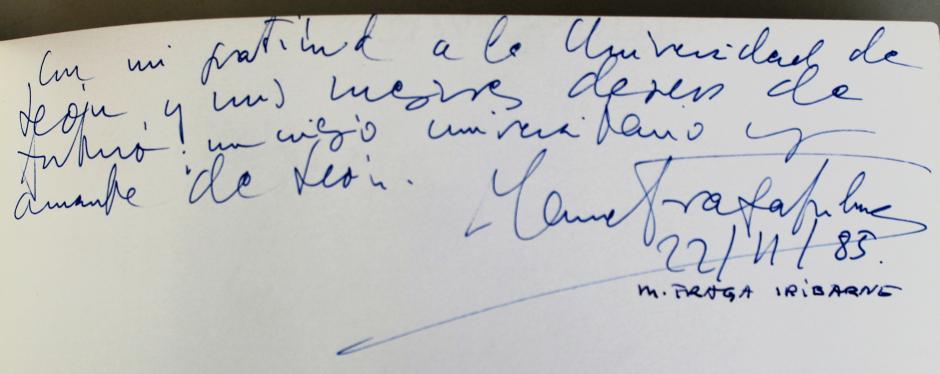 Con mi gratitud a la Universidad de
León, y mis mejores deseos de
futuro: un viejo universitario y
amante de León.
Manuel Fraga Iribarne
22/11/85.
M. FRAGA IRIBARNE